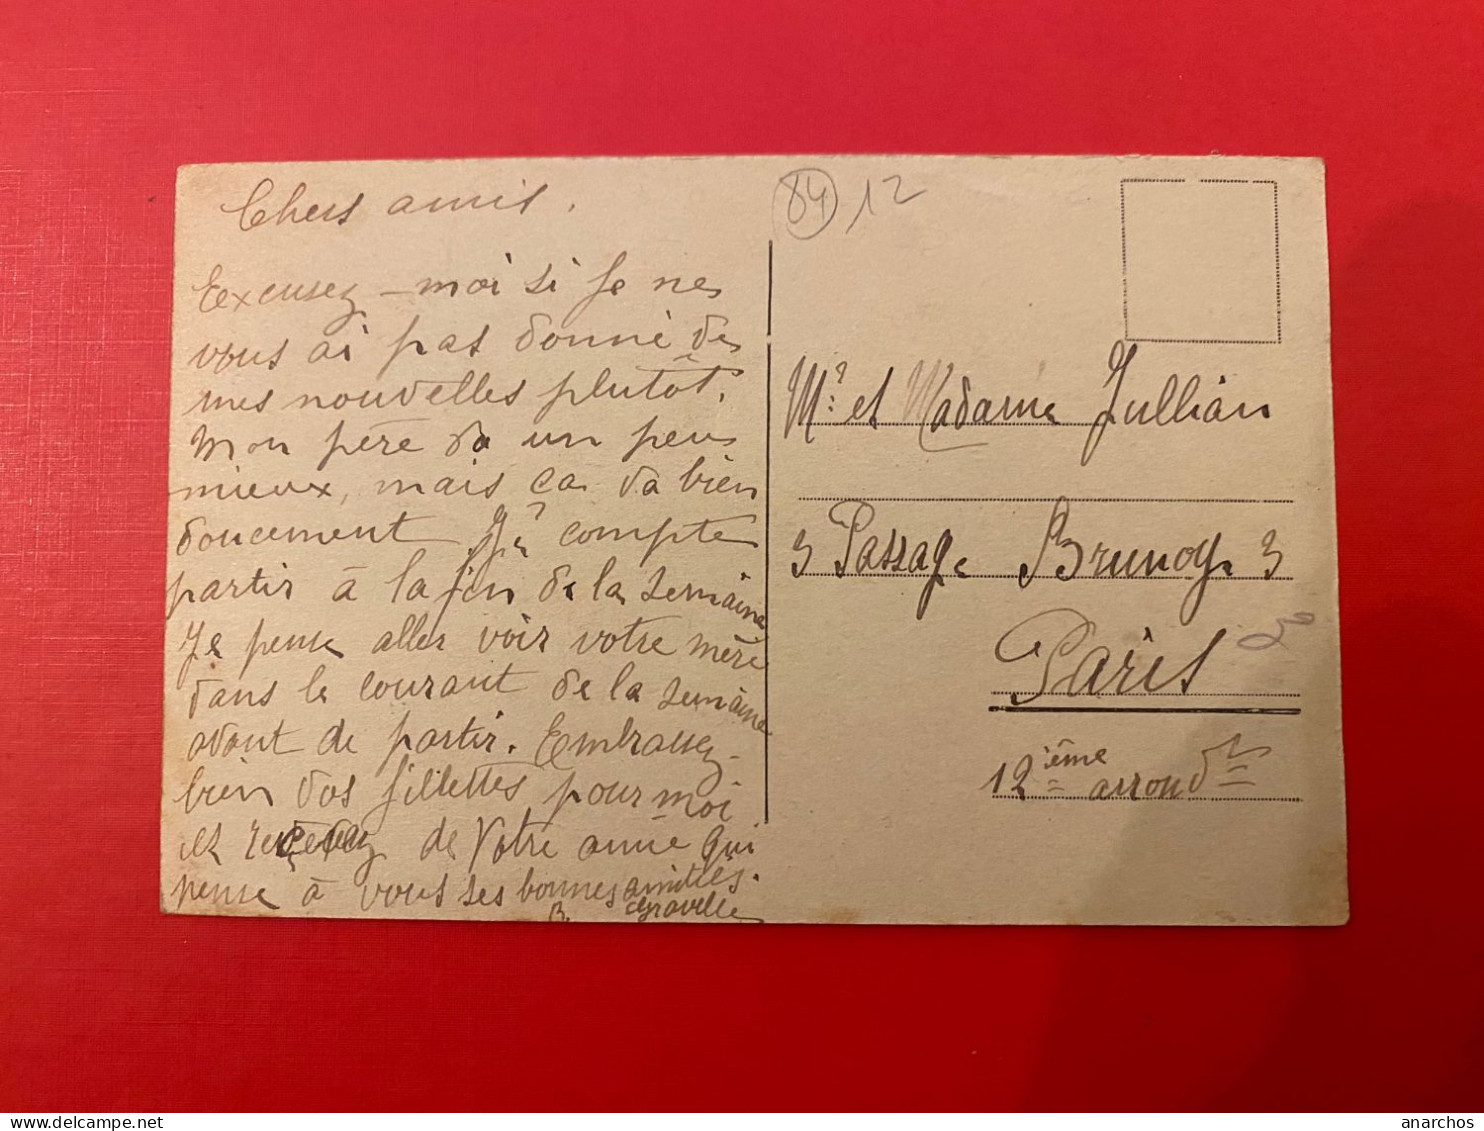 Chers amis.
Excusez-moi si je ne
vous ai pas donné de
mes nouvelles plutôt.
Mon père va un peu
mieux, mais ça va bien
doucement Je compte
partir à la fin de la semaine
Je pense aller voir votre mère
dans le courant de la semaine
avant de partir. Embrassez-
bien vos fillettes pour moi
et recevez de Votre amie qui
pense à vous ses bonnes amitiés.
B. Graville
84 12
Mr et Madame Jullian
3 Passage Brunoy 3
Paris
12ième arrondt
anarchos